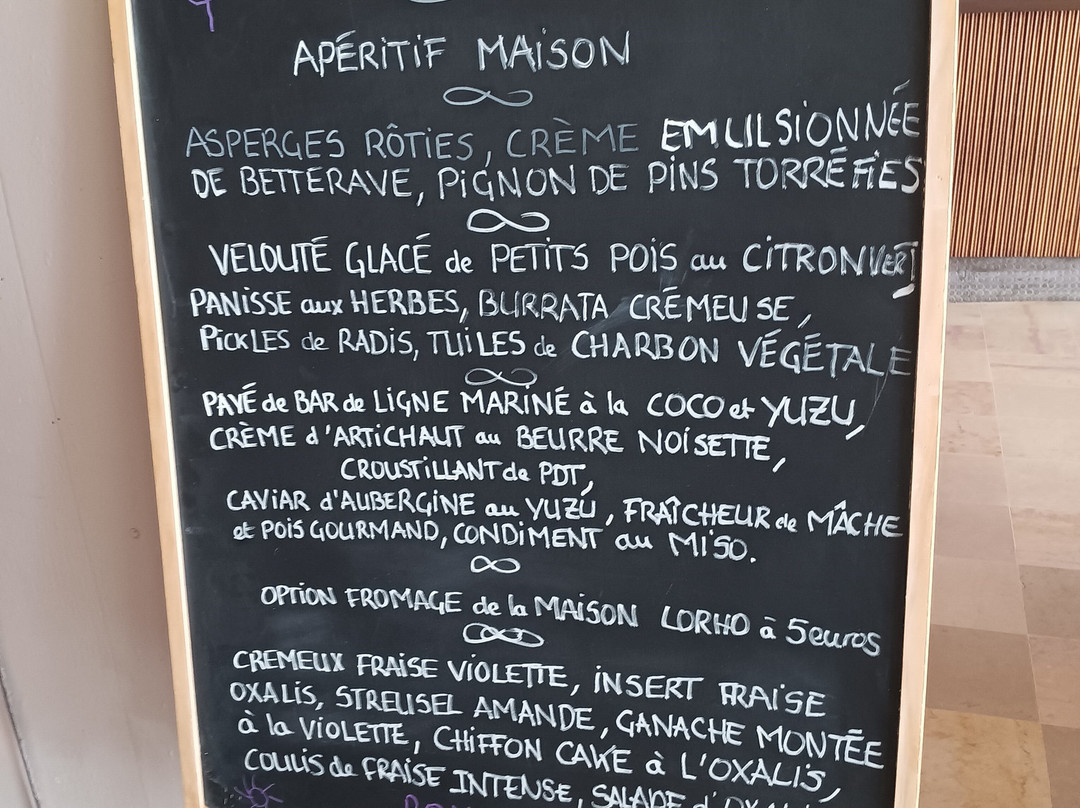 APÉRITIF MAISON
ASPERGES RÔTIES, CRÈME EMULSIONNÉE
DE BETTERAVE, PIGNON DE PINS TORRÉFIES
VELOUTÉ GLACÉ de PETITS POIS au CITRON VERT
PANISSE aux HERBES, BURRATA CRÉMEUSE,
PickLES de RADIS, TUILES de CHARBON VÉGÉTALE
PAVÉ de BAR de LIGNE MARINÉ à la COCO et YUZU,
CRÈME d'ARTICHAUT au BEURRE NOISETTE,
CROUSTILLANT de PDT,
CAVIAR d'AUBERGINE au YUZU, FRAÎCHEUR de MÂCHE
et POIS GOURMAND, CONDIMENT au MISO.
OPTION FROMAGE de la MAISON LORHO à 5euros
CREMEUX FRAISE VIOLETTE, INSERT FRAISE
OXALIS, STREUSEL AMANDE, GANACHE MONTÉE
à la VIOLETTE, CHIFFON CAKE à L'OXALIS,
COULIS de FRAISE INTENSE, SALADE